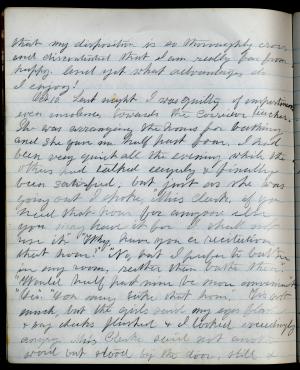 that my disposition is so thoroughly cross
and discontented that I am really far from
happy. And yet what advantages do
I enjoy!
Last night I was guilty of impertinence
even insolence towards the Corridor teacher.
She was arranging the hours for bathing
and she gave me half past four. I had
been very quiet all the evening while the
others had talked eagerly & finally
been satisfied, but just as she was
going out I spoke "Miss Clark, if you
need that hour for anyone else
you may have it for I shall not
use it." "Why, have you a recitation
that hour?" "No, but I prefer to bathe
in my room, rather than bathe then."
"Would half past nine be more convenient?"
"Yes." "You may take that hour." Was not
much, but the girls said my eyes flashed
& my cheeks flushed & I looked exceedingly
angry. Miss Clark said not another
word but stood by the door, still &